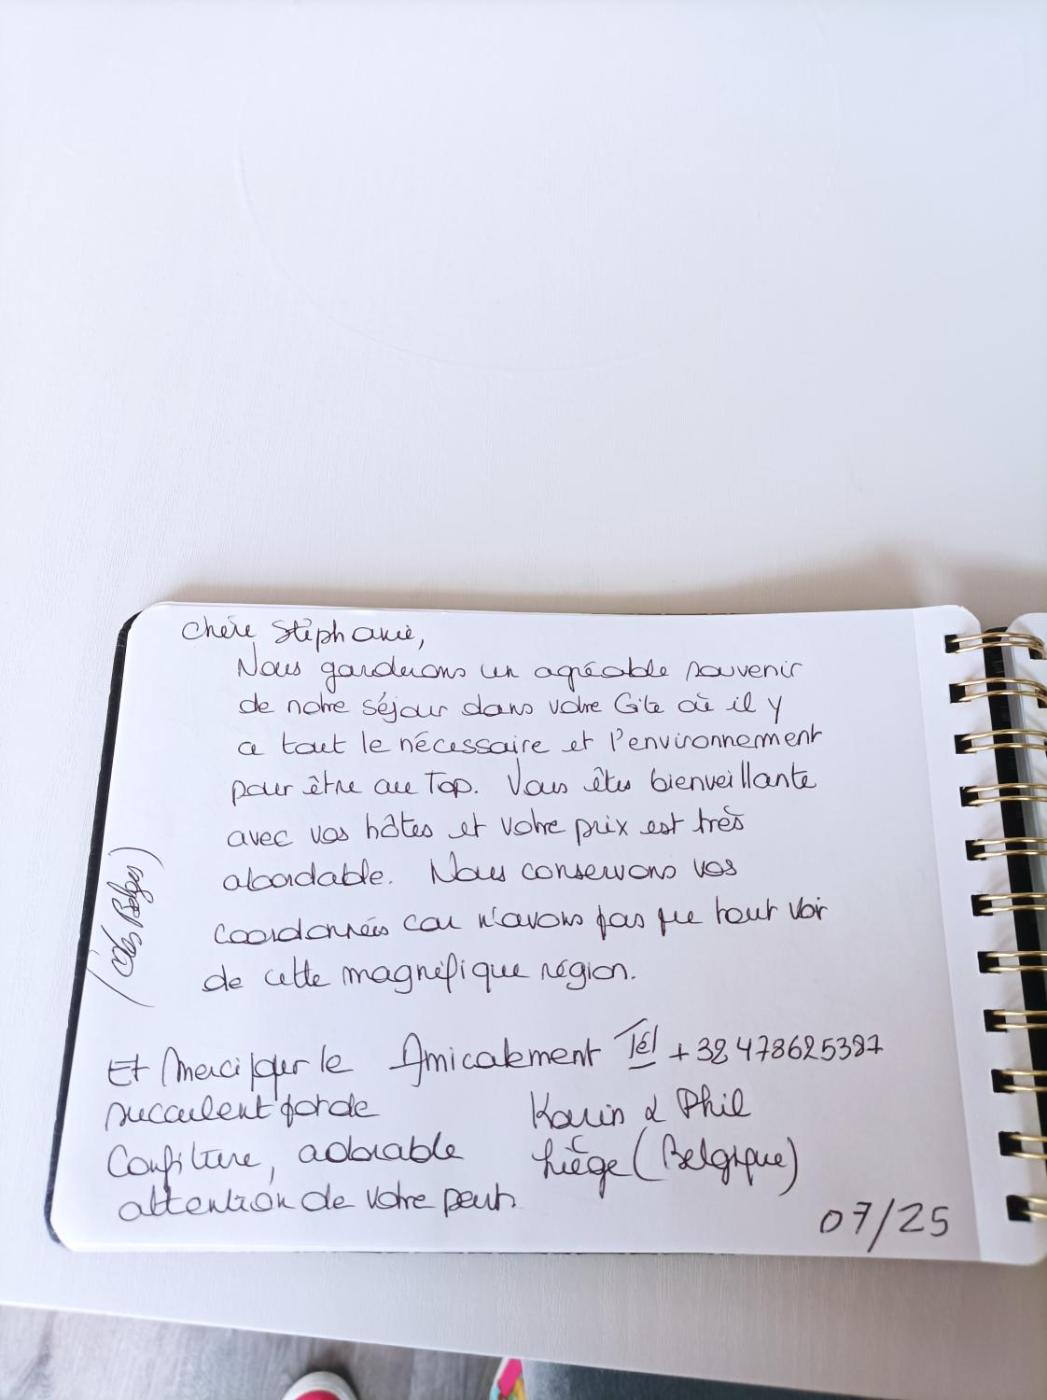 Chère Stéphanie,
Nous garderons un agréable souvenir
de notre séjour dans votre Gîte où il y
a tout le nécessaire et l'environnement
pour être au Top. Vous êtes bienveillante
avec vos hôtes et votre prix est très
abordable. Nous conservons vos
coordonnées car n'avons pas pu tout voir
de cette magnifique région.
(des Belges)
Et Merci pour le
succulent pot de
Confiture, adorable
attention de votre part.
Amicalement Tél +32 478625387
Karin & Phil
Liège (Belgique)
07/25